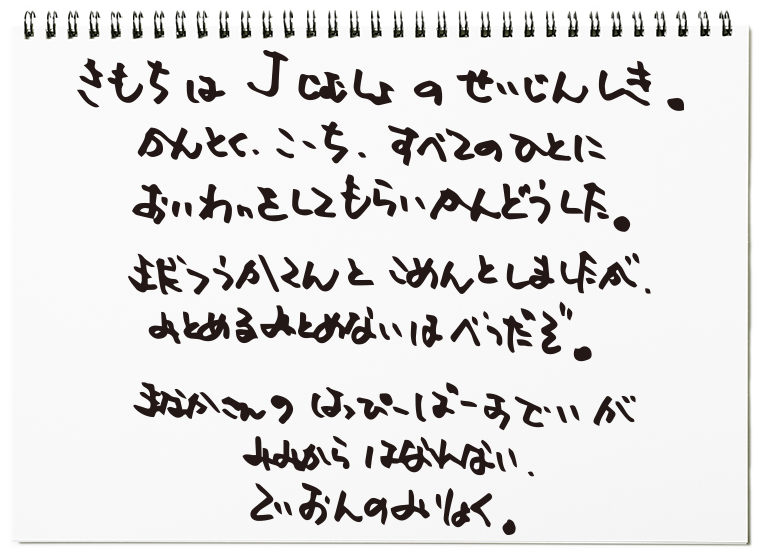 きもちは Jじょしの せいじんしき。
かんとく、こーち、すべてのひとに
おいわいをしてもらいかんどうした。
まだつうかてんと こめんとしましたが、
みとめるみとめないはべつだぞ。
まなかさんの はっぴーばーすでいが
みみから はなれない、
でぃおんのみりょく。